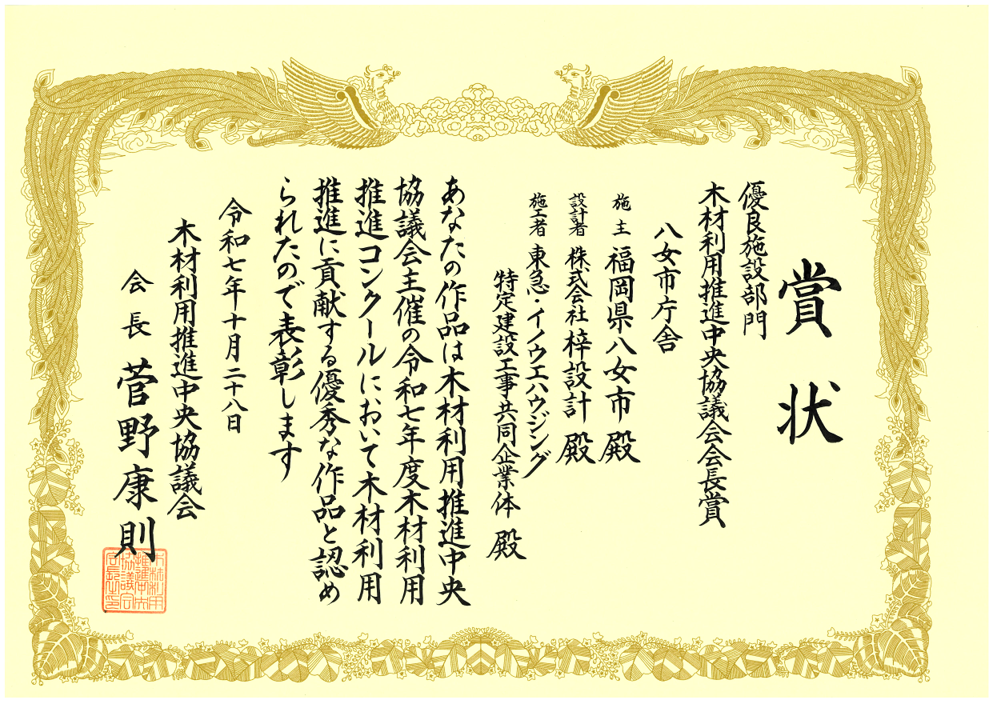 賞状
優良施設部門
木材利用推進中央協議会会長賞
八女市庁舎
施主 福岡県八女市 殿
設計者 株式会社 梓設計 殿
施工者 東急・イノウエハウジング
特定建設工事共同企業体 殿
あなたの作品は木材利用推進中央
協議会主催の令和七年度木材利用
推進コンクールにおいて木材利用
推進に貢献する優秀な作品と認め
られたので表彰します
令和七年十月二十八日
木材利用推進中央協議会
会長 菅野康則
木材利用
推進中央
協議会
会長之印